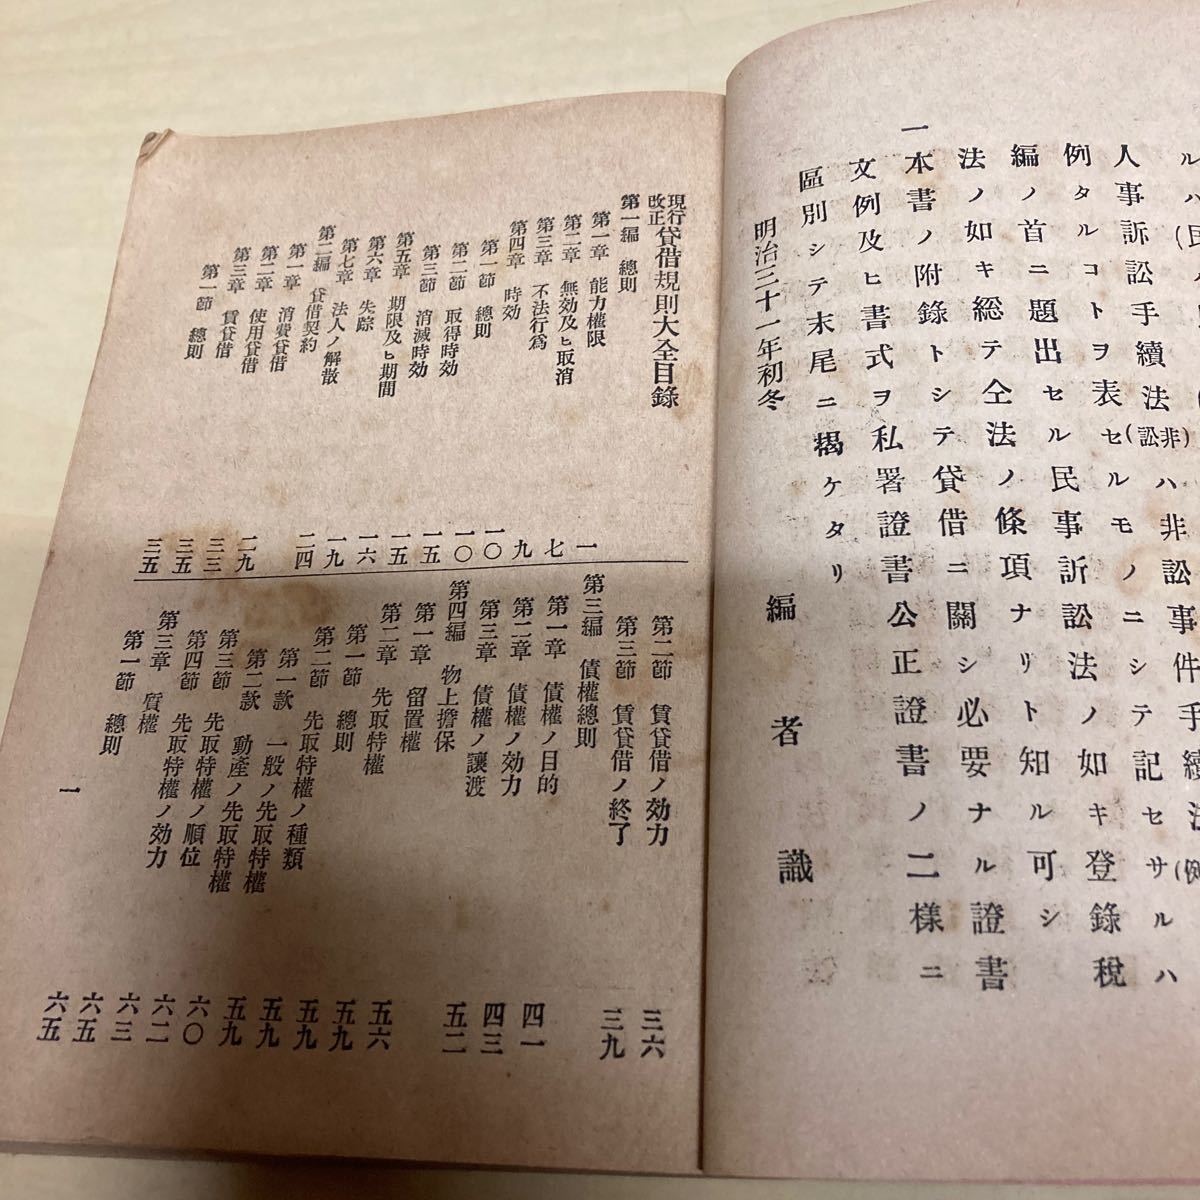 ルハ(民
人事訴訟手續法(非訟)ハ非訟事件手續法(例
例タルコトヲ表セルモノニシテ記セサルハ
編ノ首ニ題出セル民事訴訟法ノ如キ登錄稅
法ノ如キ総テ仝法ノ條項ナリト知ル可シ
一本書ノ附錄トシテ貸借ニ關シ必要ナル證書
文例及ヒ書式ヲ私署證書公正證書ノ二樣ニ
區別シテ末尾ニ揭ケタリ
明治三十一年初冬
編者識
現行改正貸借規則大全目錄
第一編 總則
第一章 能力權限 一
第二章 無効及ヒ取消 七
第三章 不法行爲 九
第四章 時効 一〇
第一節 總則 一〇
第二節 取得時効 一五
第三節 消滅時効 一五
第五章 期限及ヒ期間 一六
第六章 失踪 一九
第七章 法人ノ解散 二四
第二編 貸借契約
第一章 消費貸借 二九
第二章 使用貸借 三三
第三章 賃貸借 三五
第一節 總則 三五
第二節 賃貸借ノ効力 三六
第三節 賃貸借ノ終了 三九
第三編 債權總則
第一章 債權ノ目的 四一
第二章 債權ノ効力 四三
第三章 債權ノ讓渡 五二
第四編 物上擔保
第一章 留置權 五六
第二章 先取特權 五九
第一節 總則 五九
第二節 先取特權ノ種類 五九
第一款 一般ノ先取特權 五九
第二款 動產ノ先取特權 六〇
第三節 先取特權ノ順位 六二
第四節 先取特權ノ効力 六三
第三章 質權 六五
第一節 總則 六五
一